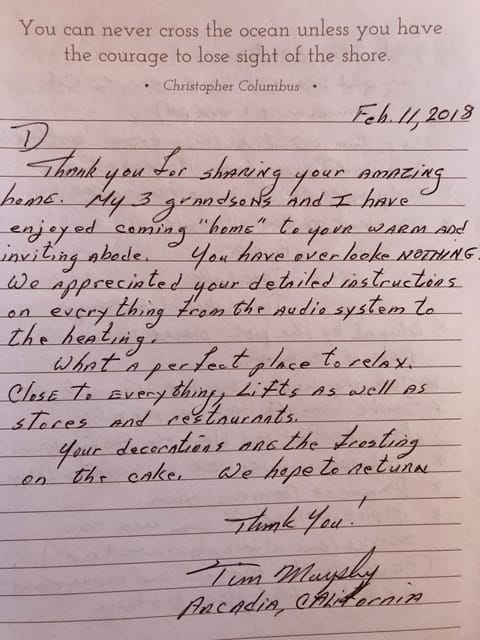 You can never cross the ocean unless you have
the courage to lose sight of the shore.
• Christopher Columbus •
Feb. 11, 2018
D
Thank you for sharing your amazing
home. My 3 grandsons and I have
enjoyed coming "home" to your warm and
inviting abode. You have overlooke nothing.
We appreciated your detailed instructions
on everything from the audio system to
the heating.
What a perfect place to relax.
Close to everything, Lifts as well as
stores and restaurants.
Your decorations are the frosting
on the cake. We hope to return
Thank You!
Tim
Arcadia, California